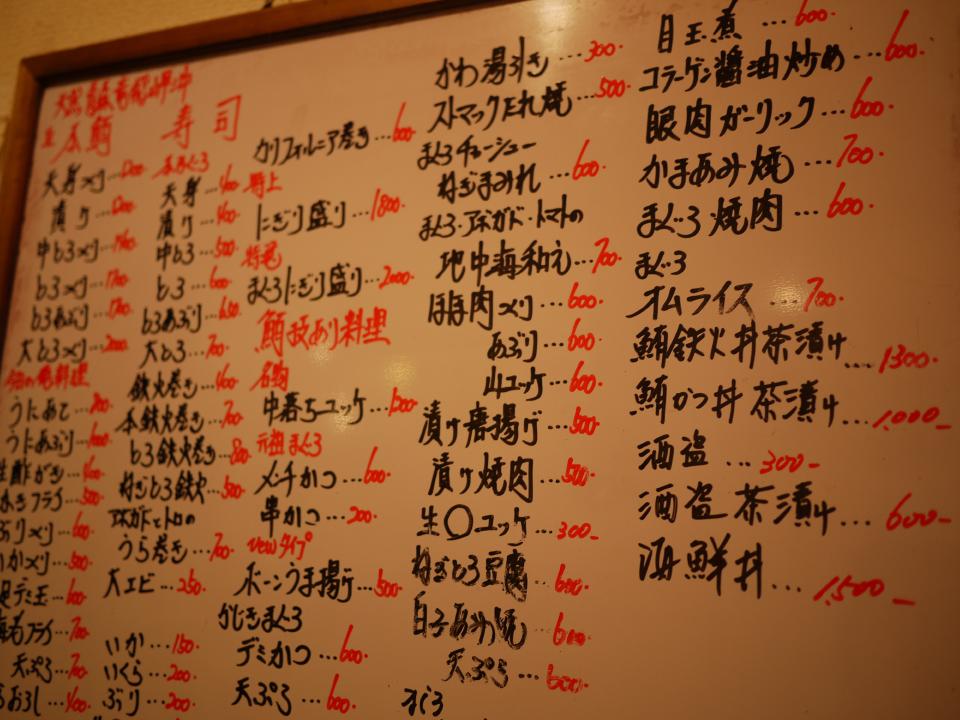 本鮪
寿司
天身づくり…1200-
漬け…1200-
中とろづくり…
とろづくり…1700-
とろあぶり…1700-
大とろづくり…2000-
うにあえ
うにあぶり
生酢がき
かきフライ…500-
ぶりづくり…600-
いかづくり…500-
天ぷら…700-
本まぐろ
天身…400-
漬け…400-
中とろ…500-
とろ…600-
とろあぶり…650-
大とろ…700-
鉄火巻き…400-
本鉄火巻き…700-
とろ鉄火巻き…800-
ねぎとろ鉄火…500-
アボガドとトロの
うら巻き…700-
大エビ…250-
いか…150-
いくら…200-
ぶり…200-
カリフォルニア巻き…600-
特上
にぎり盛り…1800-
特選
まぐろにぎり盛り…2000-
鮪技あり料理
名物
中落ちユッケ…1200-
元祖まぐろ
メンチかつ…600-
串かつ…200-
Newタイプ
ボーンうま揚げ…500-
かじきまぐろ
デミかつ…600-
天ぷら…600-
かわ湯引き…300-
ストマックたれ焼…500-
まぐろチャーシュー
ねぎまみれ…600-
まぐろ・アボガド・トマトの
地中海和え…700-
ほほ肉づくり…600-
あぶり…600-
山ユッケ…600-
漬け唐揚げ…500-
漬け焼肉…500-
生〇ユッケ…300-
ねぎとろ豆腐…600-
白子あみ焼…600-
天ぷら…600-
まぐろ
目玉煮…600-
コラーゲン醤油炒め…600-
眼肉ガーリック…600-
かまあみ焼…700-
まぐろ焼肉…600-
まぐろ
オムライス…700-
鮪鉄火丼茶漬け…1300-
鮪かつ丼茶漬け…1,000-
酒盗…300-
酒盗茶漬け…600-
海鮮丼…1,500-